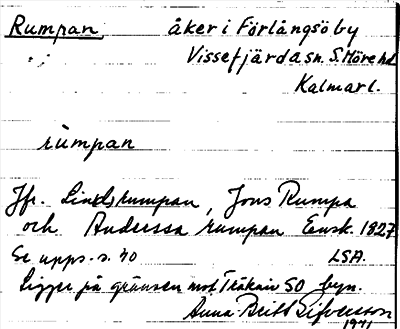 Rumpan åker i Förlångsö by
Vissefjärda sn. S. Möre hd
Kalmar l.
rumpan
Jfr. Lindsrumpan, Jons Rumpa
och Anderssa rumpan Ensk. 1827
Se upps. s. 70 LSA.
Ligger på gränsen mot Tråkärr SO byn.
Anna Britt Sifversson
1971